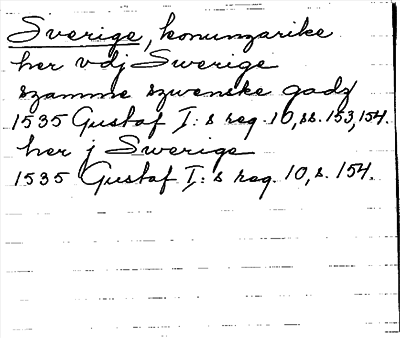 Sverige, konungarike
her vdj Swerige
szamme szwenske godz
1535 Gustaf I:s reg. 10, ss. 153, 154.
her j Swerige
1535 Gustaf I:s reg. 10, s. 154.